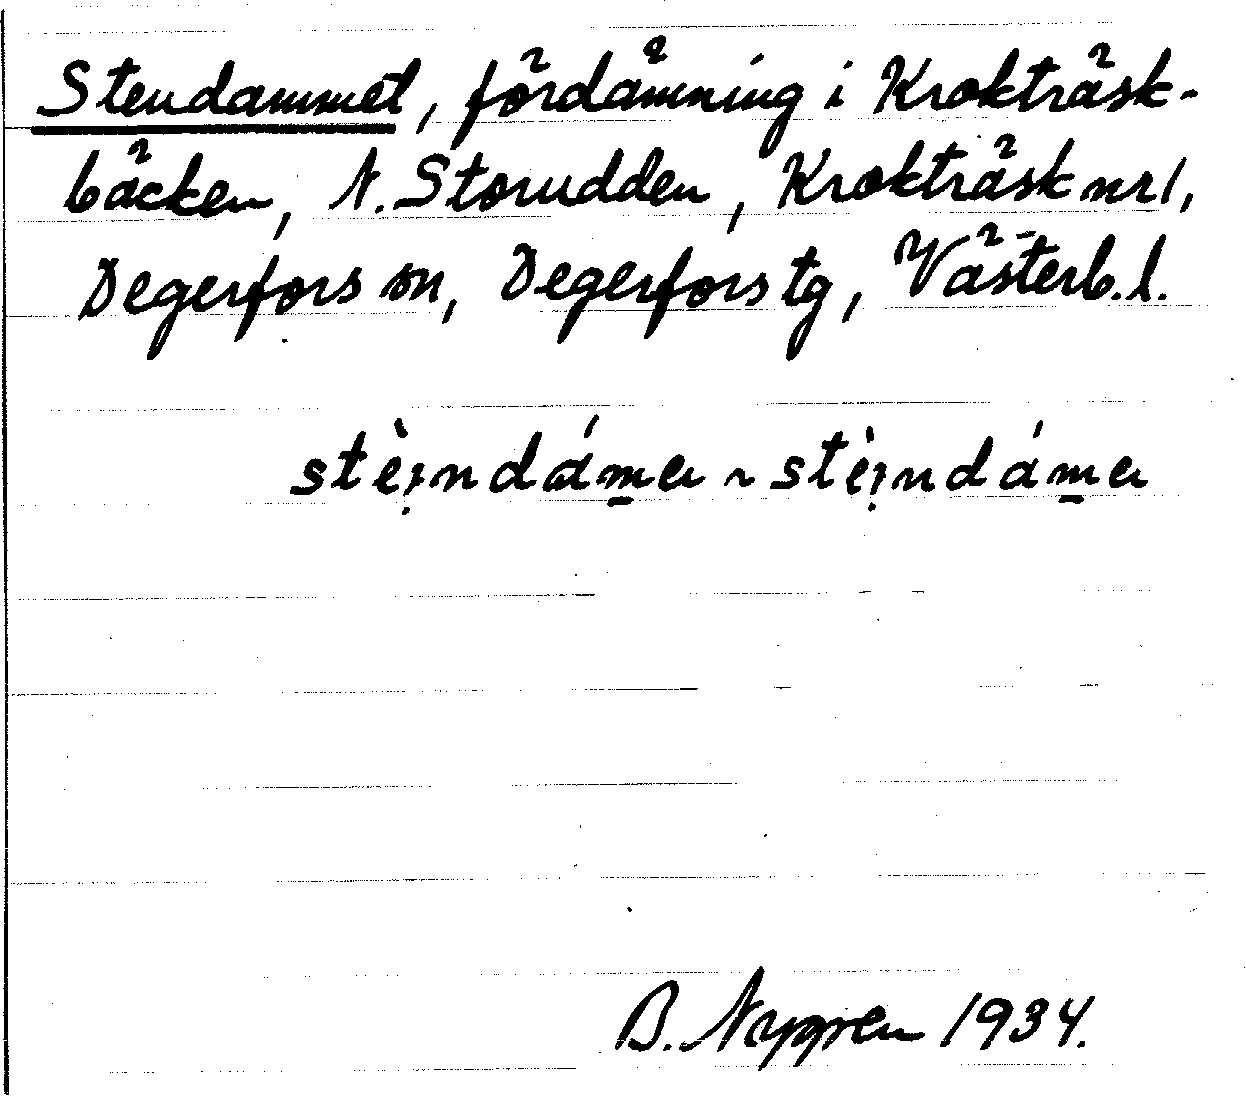 Stendammet, fördämning i Krokträsk-
bäcken, N. Storudden, Krokträsk nr 1,
Degerfors sn, Degerfors tg, Västerb. l.
stèi̯ndám̲e ~ stèi̯ndám̲e
B. Nygren 1934.